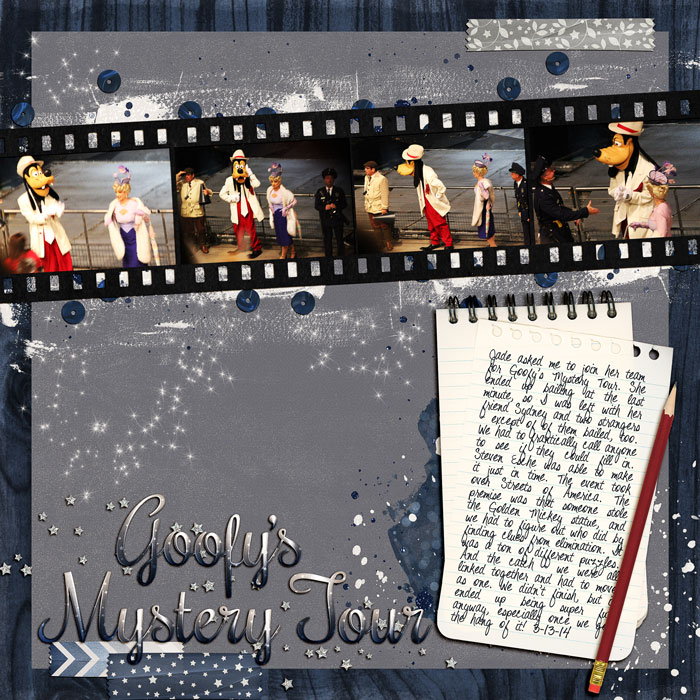 Goofy's
Mystery Tour
Jade asked me to join her team
for Goofy's Mystery Tour. She
ended up bailing at the last
minute, so I was left with her
friend Sydney and two strangers
except of of them bailed, too.
We had to frantically call anyone
to see if they could fill in.
Steven Esche was able to make
it just in time. The event took
over Streets of America. The
premise was that someone stole
the Golden Mickey statue, and
we had to figure out who did by
finding clues from elimination. It
was a ton of different puzzles.
And the catch - we were all
linked together and had to move
as one. We didn't finish, but
ended up being super
anyway, especially once we
the hang of it! 3-13-14